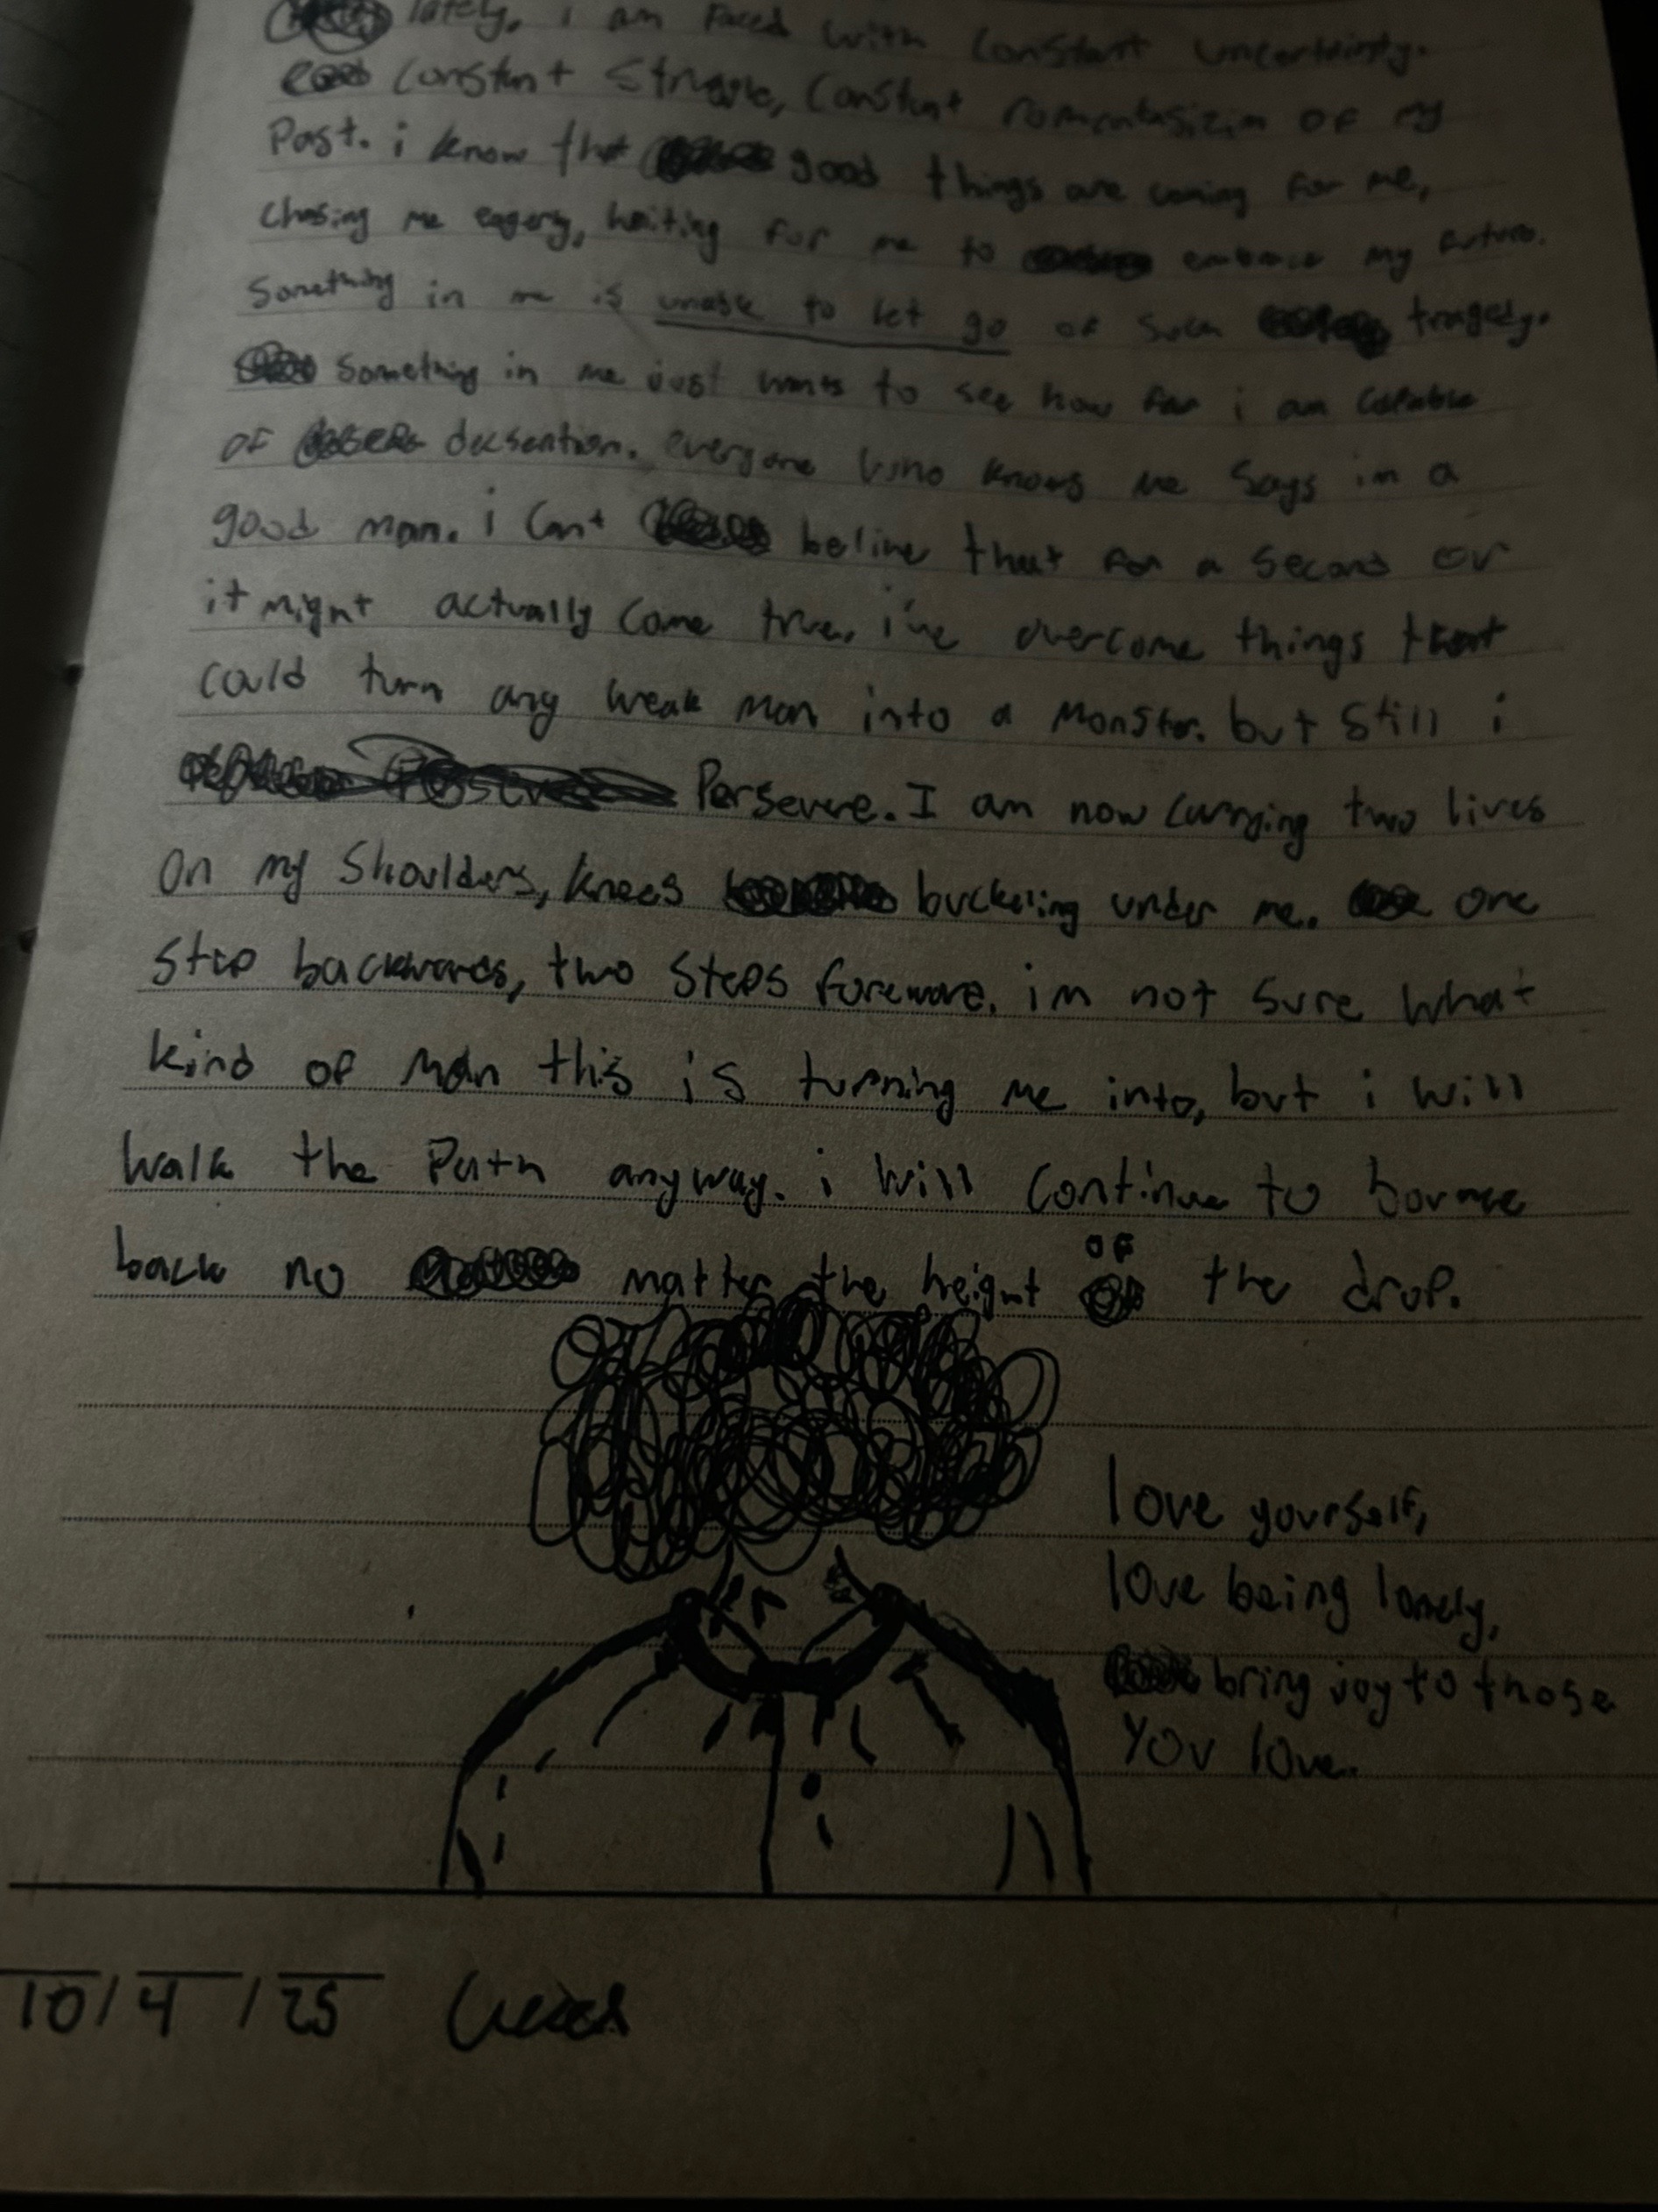 lately, i am faced with constant uncertainty.
constant struggle, constant romantasizim of my
Past. i know that good things are coming for me,
chasing me eagerly, waiting for me to embrace my future.
Something in me is unable to let go of such tragedy.
Something in me just wants to see how far i am capable
of decsention. everyone who knows me says im a
good man. i cant belive that for a second or
it might actually come true. i've overcome things that
could turn any weak man into a monster. but still i
Persevere. I am now carrying two lives
on my shoulders, knees buckeling under me. one
step backwards, two steps foreward. im not sure what
kind of man this is turning me into, but i will
walk the Path anyway. i will continue to bounce
back no matter the height of the drop.
love yourself,
love being lonely,
bring joy to those
YOU love.
10/4/25